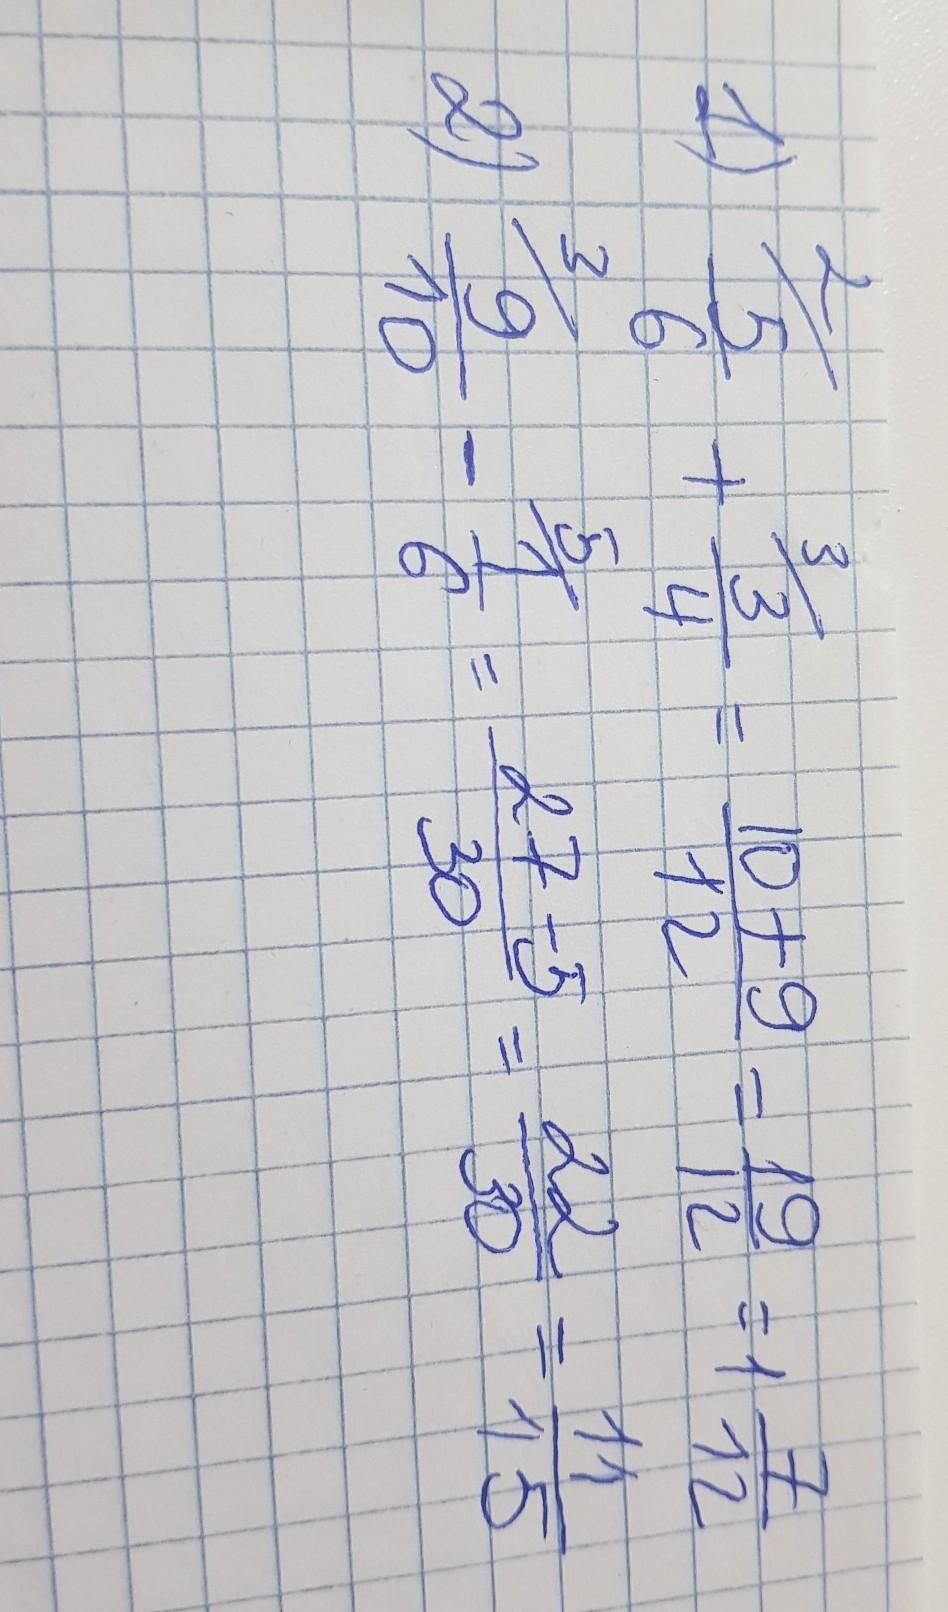 1) ²⁄ 5/6 + ³⁄ 3/4 = (10+9)/12 = 19/12 = 1 7/12
2) ³⁄ 9/10 - ⁵⁄ 1/6 = (27-5)/30 = 22/30 = 11/15